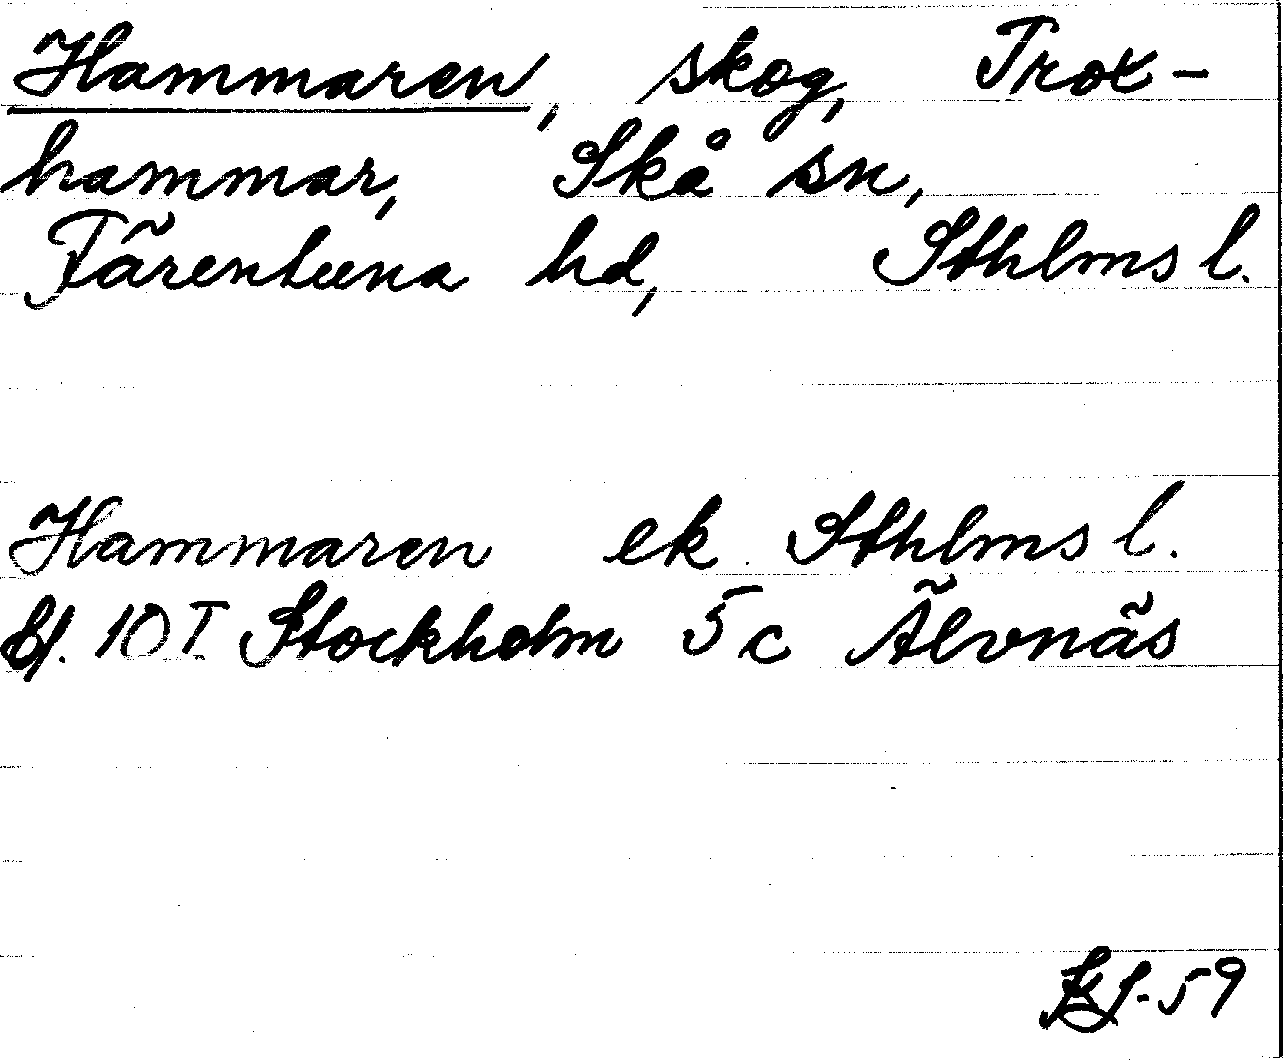 Hammaren, skog, Trox-
hammar, Skå sn,
Färentuna hd, Sthlms l.
Hammaren ek. Sthlms l.
bl. 10 I Stockholm 5 c Älvnäs
-59